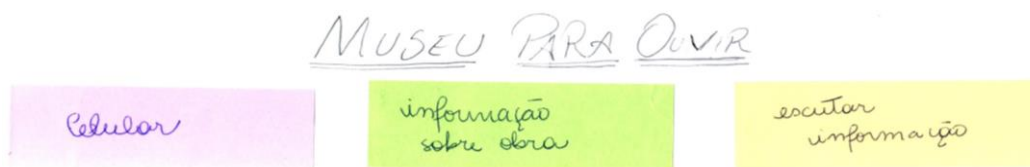 MUSEU PARA OUVIR
Celular
informação
sobre obra
escutar
informação